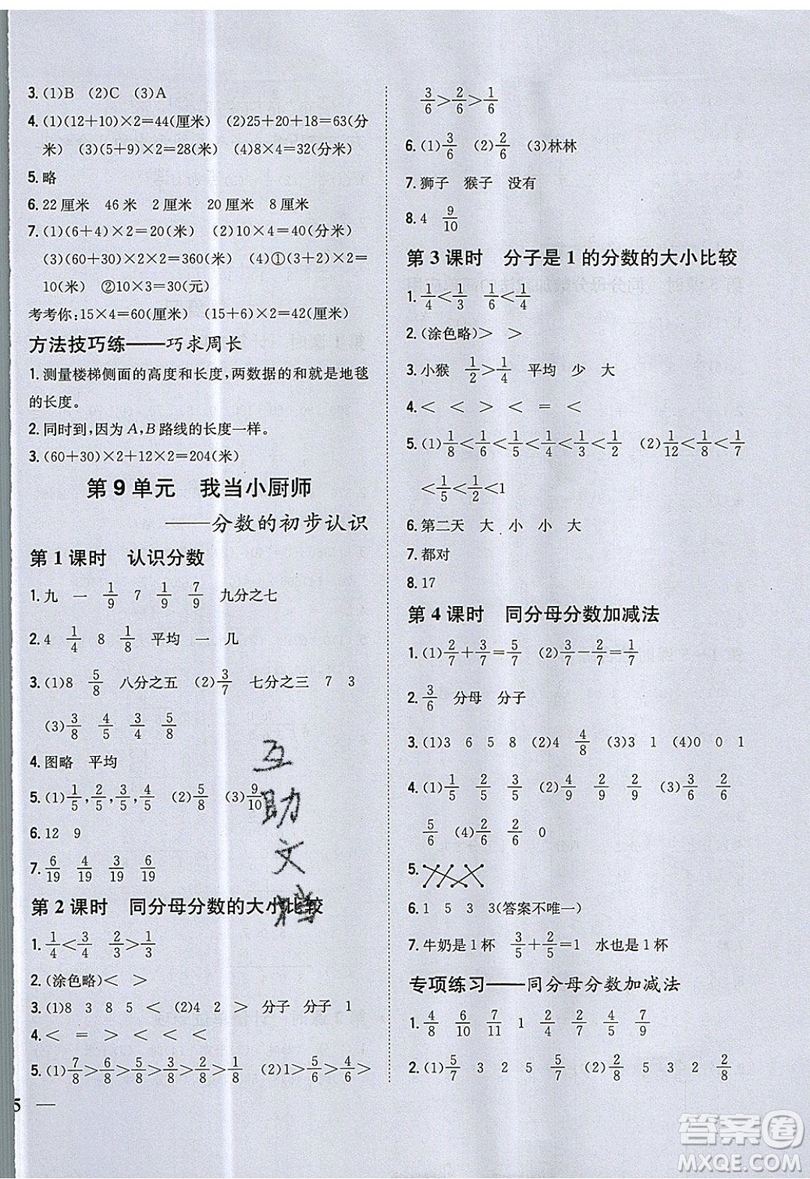 3.(1)B (2)C (3)A
4.(1)(12+10)×2=44(厘米) (2)25+20+18=63(分
米) (3)(5+9)×2=28(米) (4)8×4=32(米)
5.略
6.22厘米 46米 2厘米 20厘米 8厘米
7.(1)(6+4)×2=20(米) (2)10×4=40(分米)
(3)(60+30)×2×2=360(米) (4)①(3+2)×2
=10(米) ②10×3=30(元)
考考你:15×4=60(厘米) (15+6)×2=42(厘米)
方法技巧练——巧求周长
1.测量楼梯侧面的高度和长度,两数据的和就是地毯
的长度。
2.同时到,因为A,B路线的长度一样。
3.(60+30)×2+12×2=204(米)
第9单元 我当小厨师
——分数的初步认识
第1课时 认识分数
1.九 一 1/9 7 1/9 7/9 九分之七
2.4 1/4 8 1/8 平均 一 几
3.(1)8 5/8 八分之五 (2)3/7 七分之三 7 3
(3)3/8 4/5 3/4 5/8
4.图略 平均
5.(1)1/5,2/5,4/5 (2)5/8 (3)9/10
6.12 9
7.6/19 4/19 9/19
第2课时 同分母分数的大小比较
1.1/4<3/4 2/3>1/3
2.(涂色略)< >
3.(1)8 3 8 5 < (2)4 2 > 分子 分子 1
4.< = > < < >
5.(1)7/8>6/8>3/8>2/8>1/8 (2)5/6>4/6>
3/6>2/6>1/6
6.(1)3/6 (2)2/6 (3)林林
7.狮子 猴子 没有
8.4 9/10
第3课时 分子是1的分数的大小比较
1.1/4<1/2 1/5<1/3
2.(涂色略)> >
3.小猴 1/2>1/4 平均 少 大
4.< < > < = <
5.(1)1/8<1/7<1/6<1/5<1/2 (2)1/9<1/4
<1/3<1/2<1
6.第二天 大 小 小 大
7.都对
8.17
第4课时 同分母分数加减法
1.(1)2/7+3/7=5/7 (2)3/7-2/7=1/7
2.3/6 分母 分子
3.(1)3 6 5 8 (2)4/8 (3)3 1 (4)0 0 1
4.(1)4/5 1/5 5/9 2/9 (2)2/5 (3)1/6 4/6
5/6 (4)2/6 2/6 0
5.
6.1 5 3 3(答案不唯一)
7.牛奶是1杯 3/5+2/5=1(杯) 水也是1杯
专项练习——同分母分数加减法
1.4/8 6/10 7/11 3/4 4/5 7/9
2.(1)5/7 3 2 5 (2)3/7 5 2 3
5 —
互助文档
答案圈
MXQE.COM